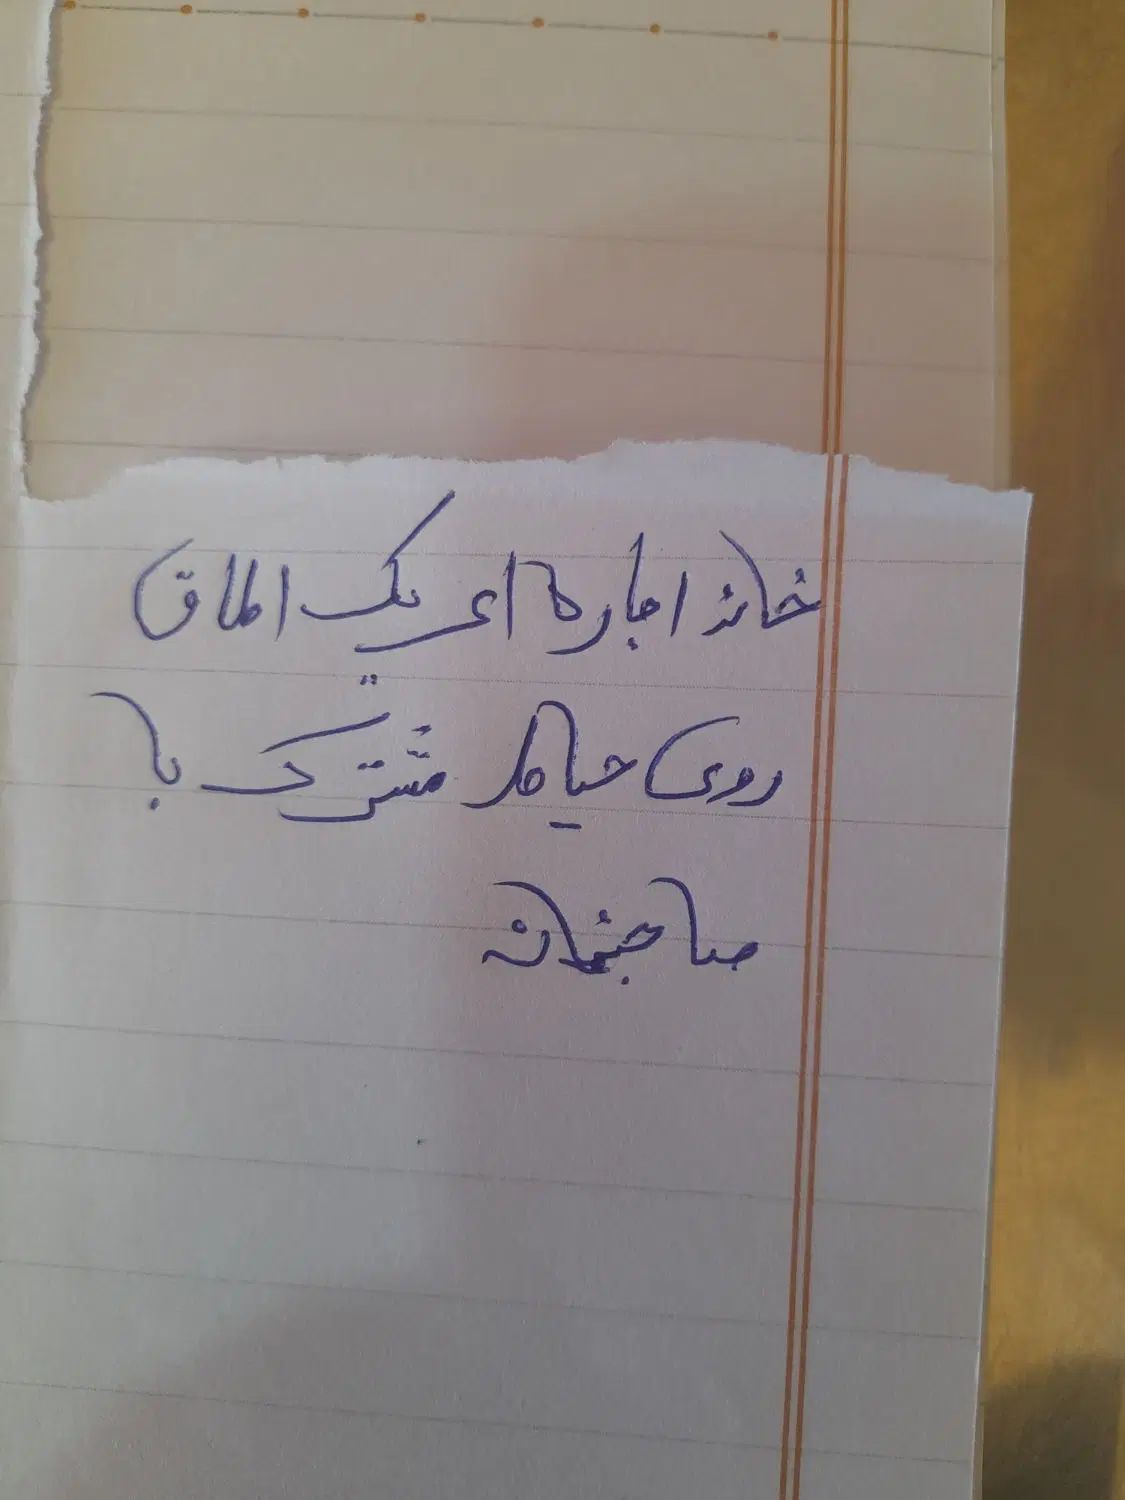 خانه اجاره ای یک اطاق
روی حیاط مشترک با
صاحبخانه